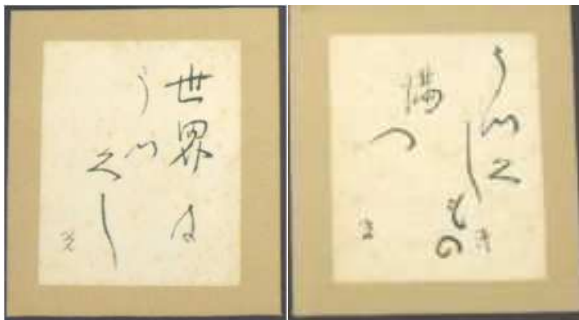 世界は
うつくし
うつくし
もの
満つ